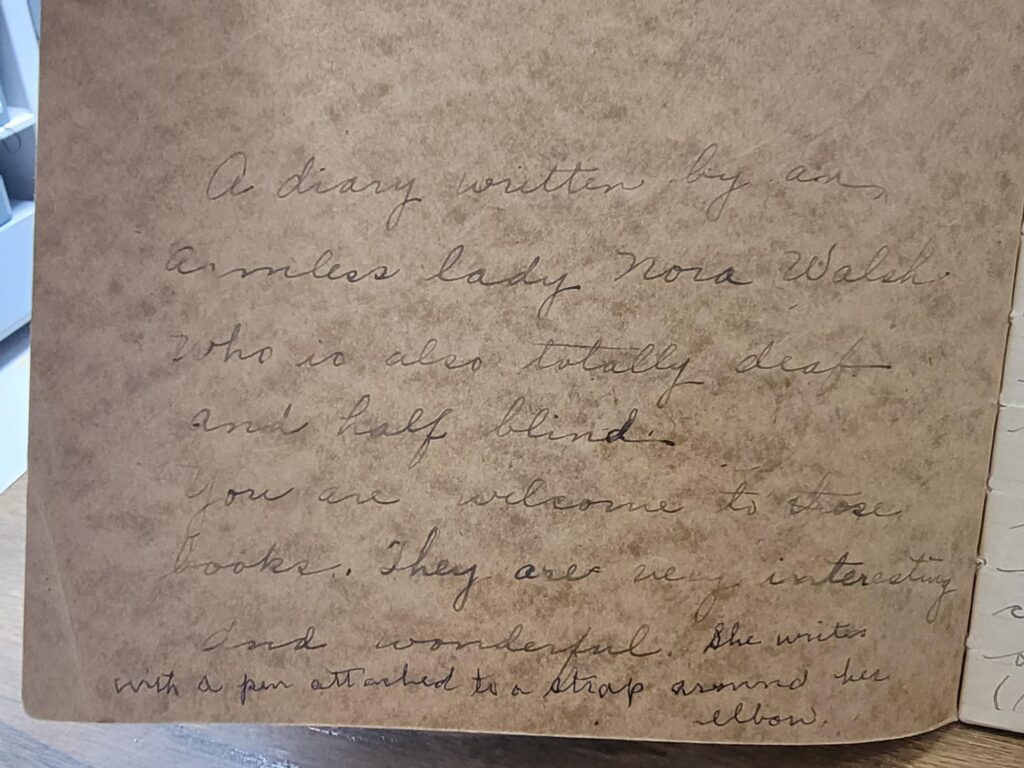 A diary written by an
armless lady Nora Walsh
who is also totally deaf
and half blind.
You are welcome to these
books. They are very interesting
and wonderful. She writes
with a pen attached to a strap around her
elbow.